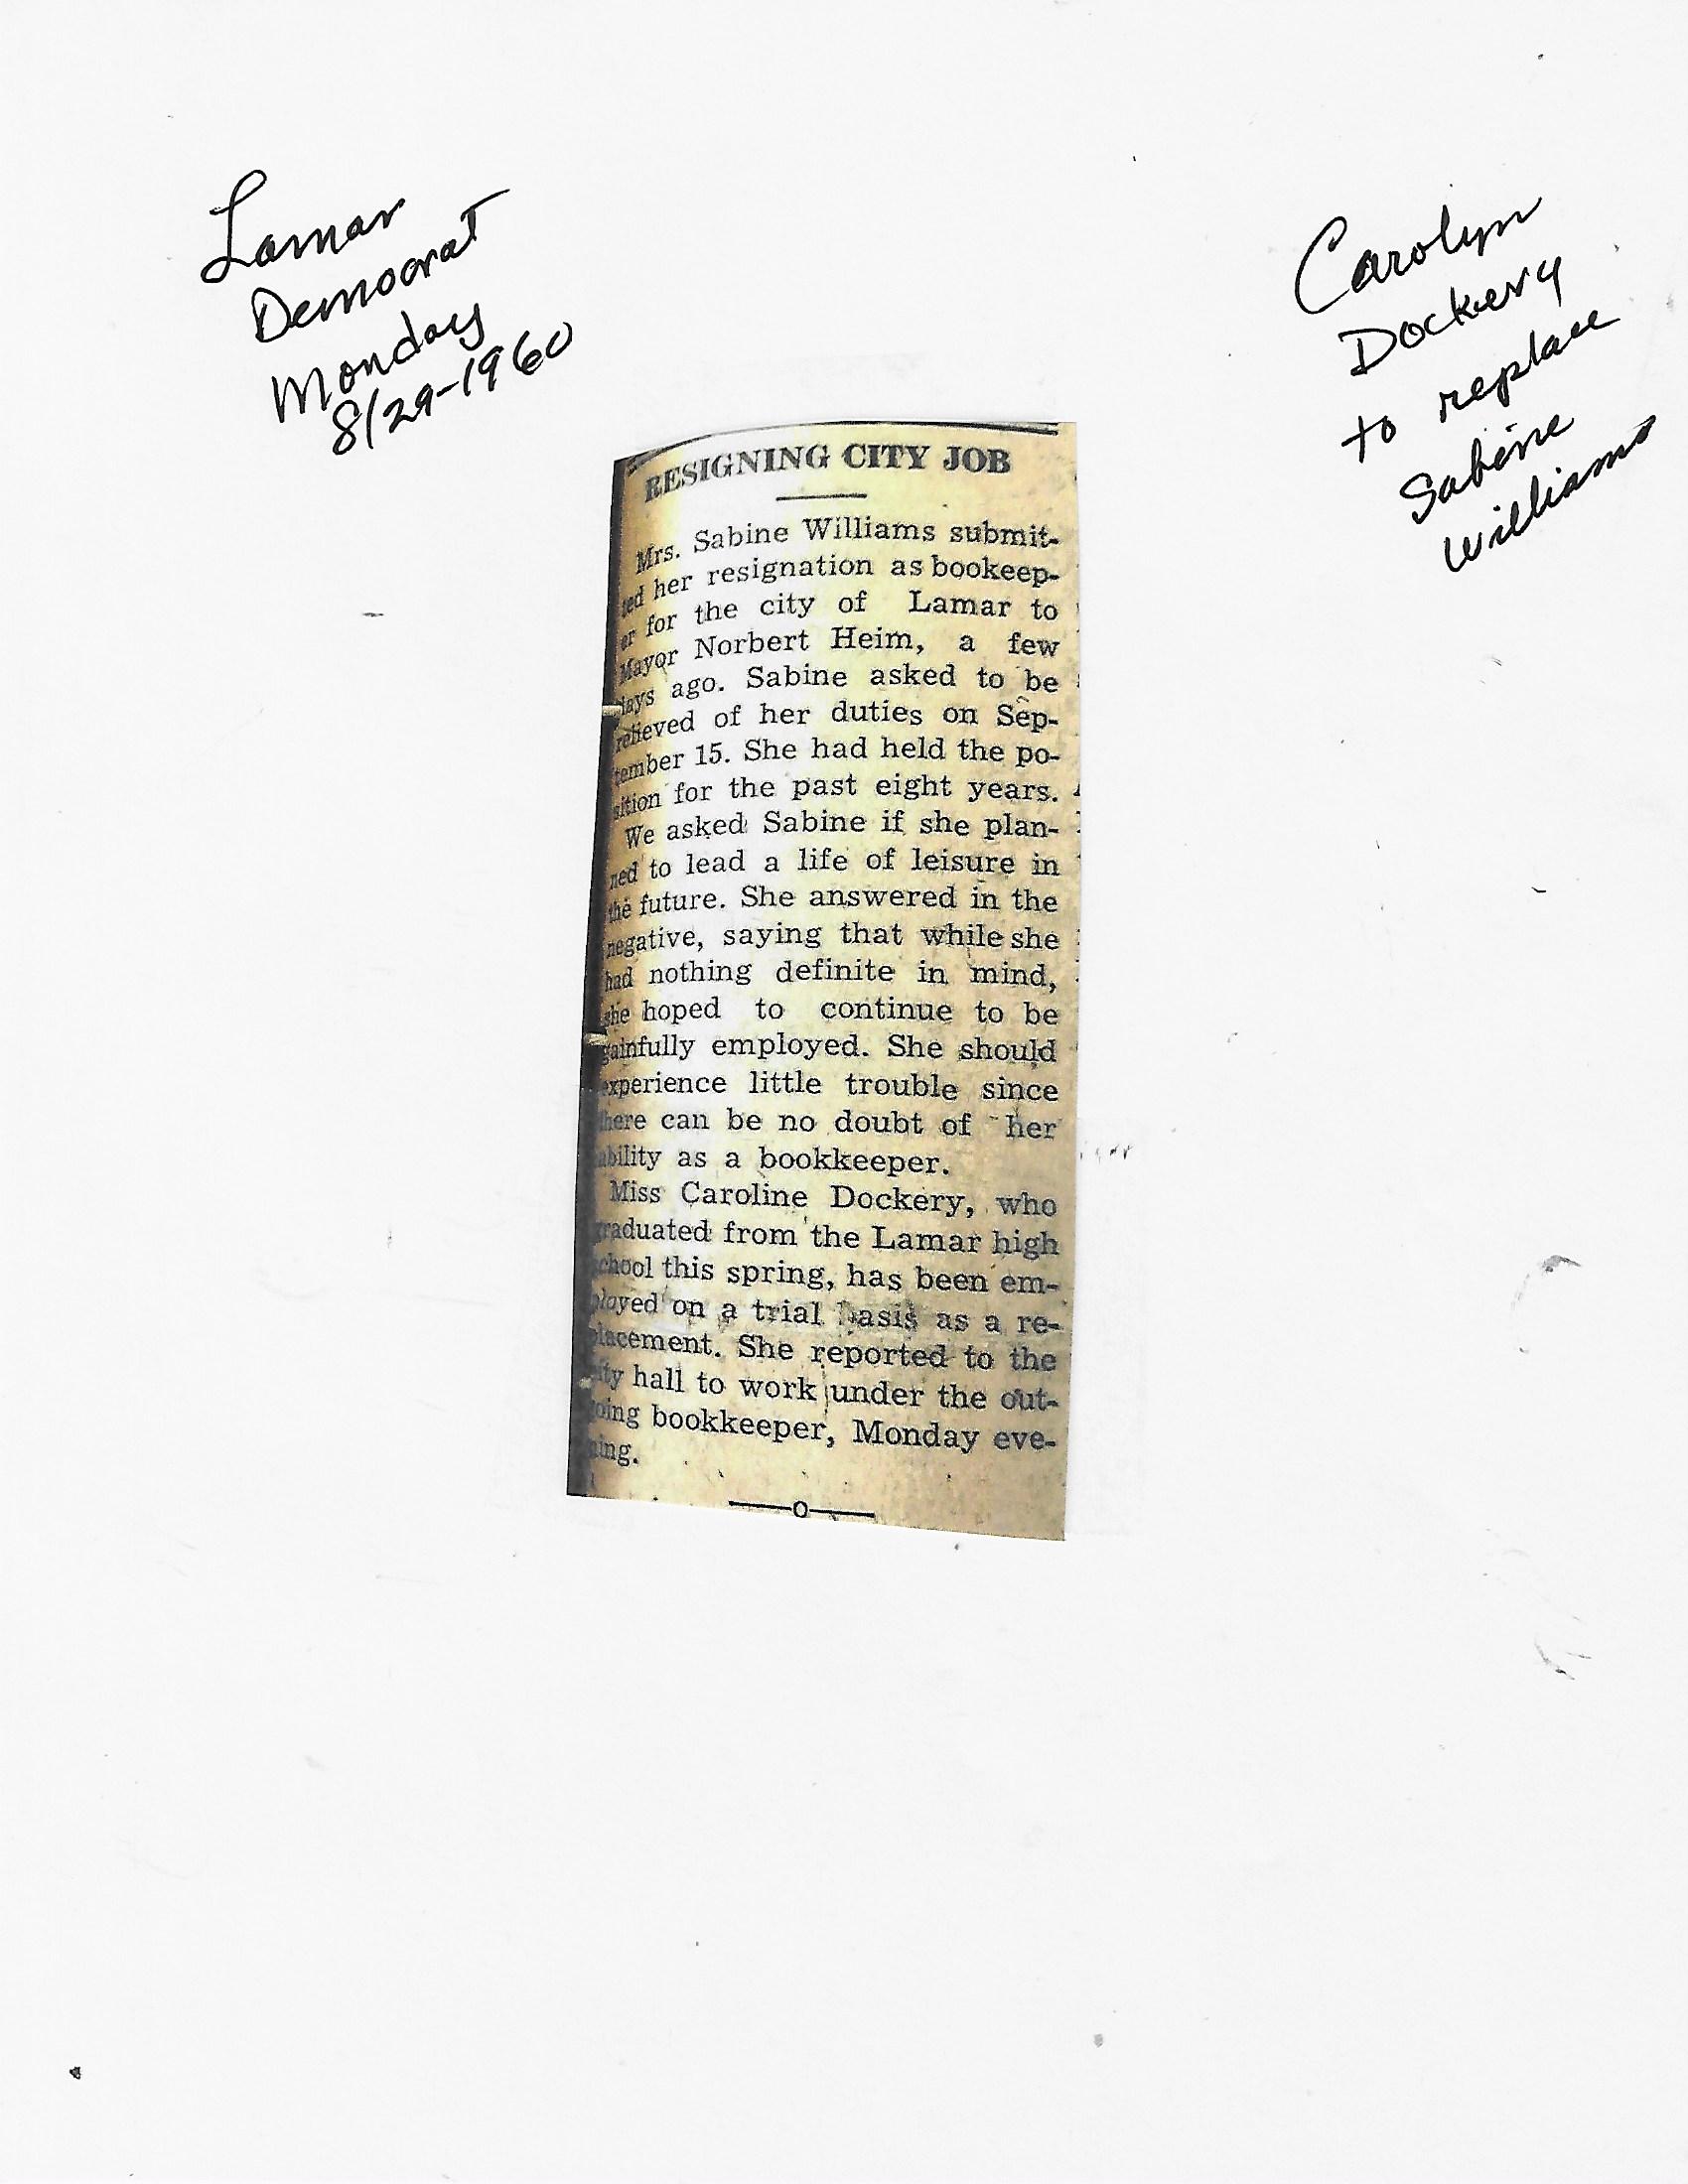 Lamar
Democrat
Monday
8/29-1960
Carolyn
Dockery
to replace
Sabine
Williams
RESIGNING CITY JOB
Mrs. Sabine Williams submit-
ted her resignation as bookeep-
er for the city of Lamar to
Mayor Norbert Heim, a few
days ago. Sabine asked to be
relieved of her duties on Sep-
tember 15. She had held the po-
sition for the past eight years.
We asked Sabine if she plan-
ned to lead a life of leisure in
the future. She answered in the
negative, saying that while she
had nothing definite in mind,
she hoped to continue to be
gainfully employed. She should
experience little trouble since
there can be no doubt of her
ability as a bookkeeper.
Miss Caroline Dockery, who
graduated from the Lamar high
school this spring, has been em-
ployed on a trial basis as a re-
placement. She reported to the
city hall to work under the out-
going bookkeeper, Monday eve-
ning.